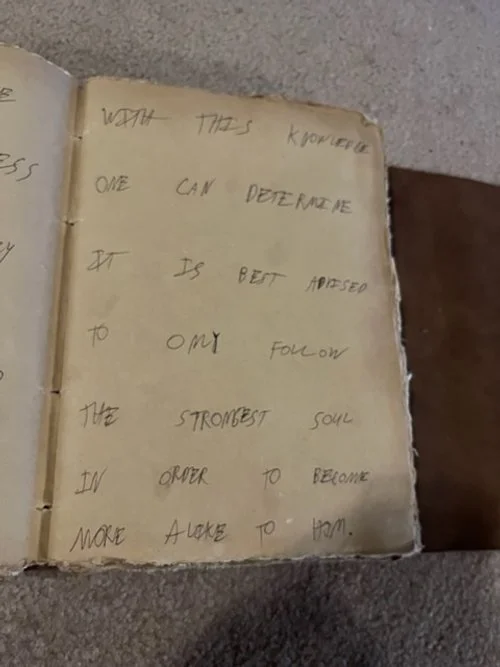 E
ESS
Y
WITH THIS KNOWLEDGE
ONE CAN DETERMINE
IT IS BEST ADVISED
TO ONLY FOLLOW
THE STRONGEST SOUL
IN ORDER TO BECOME
MORE ALIKE TO HIM.